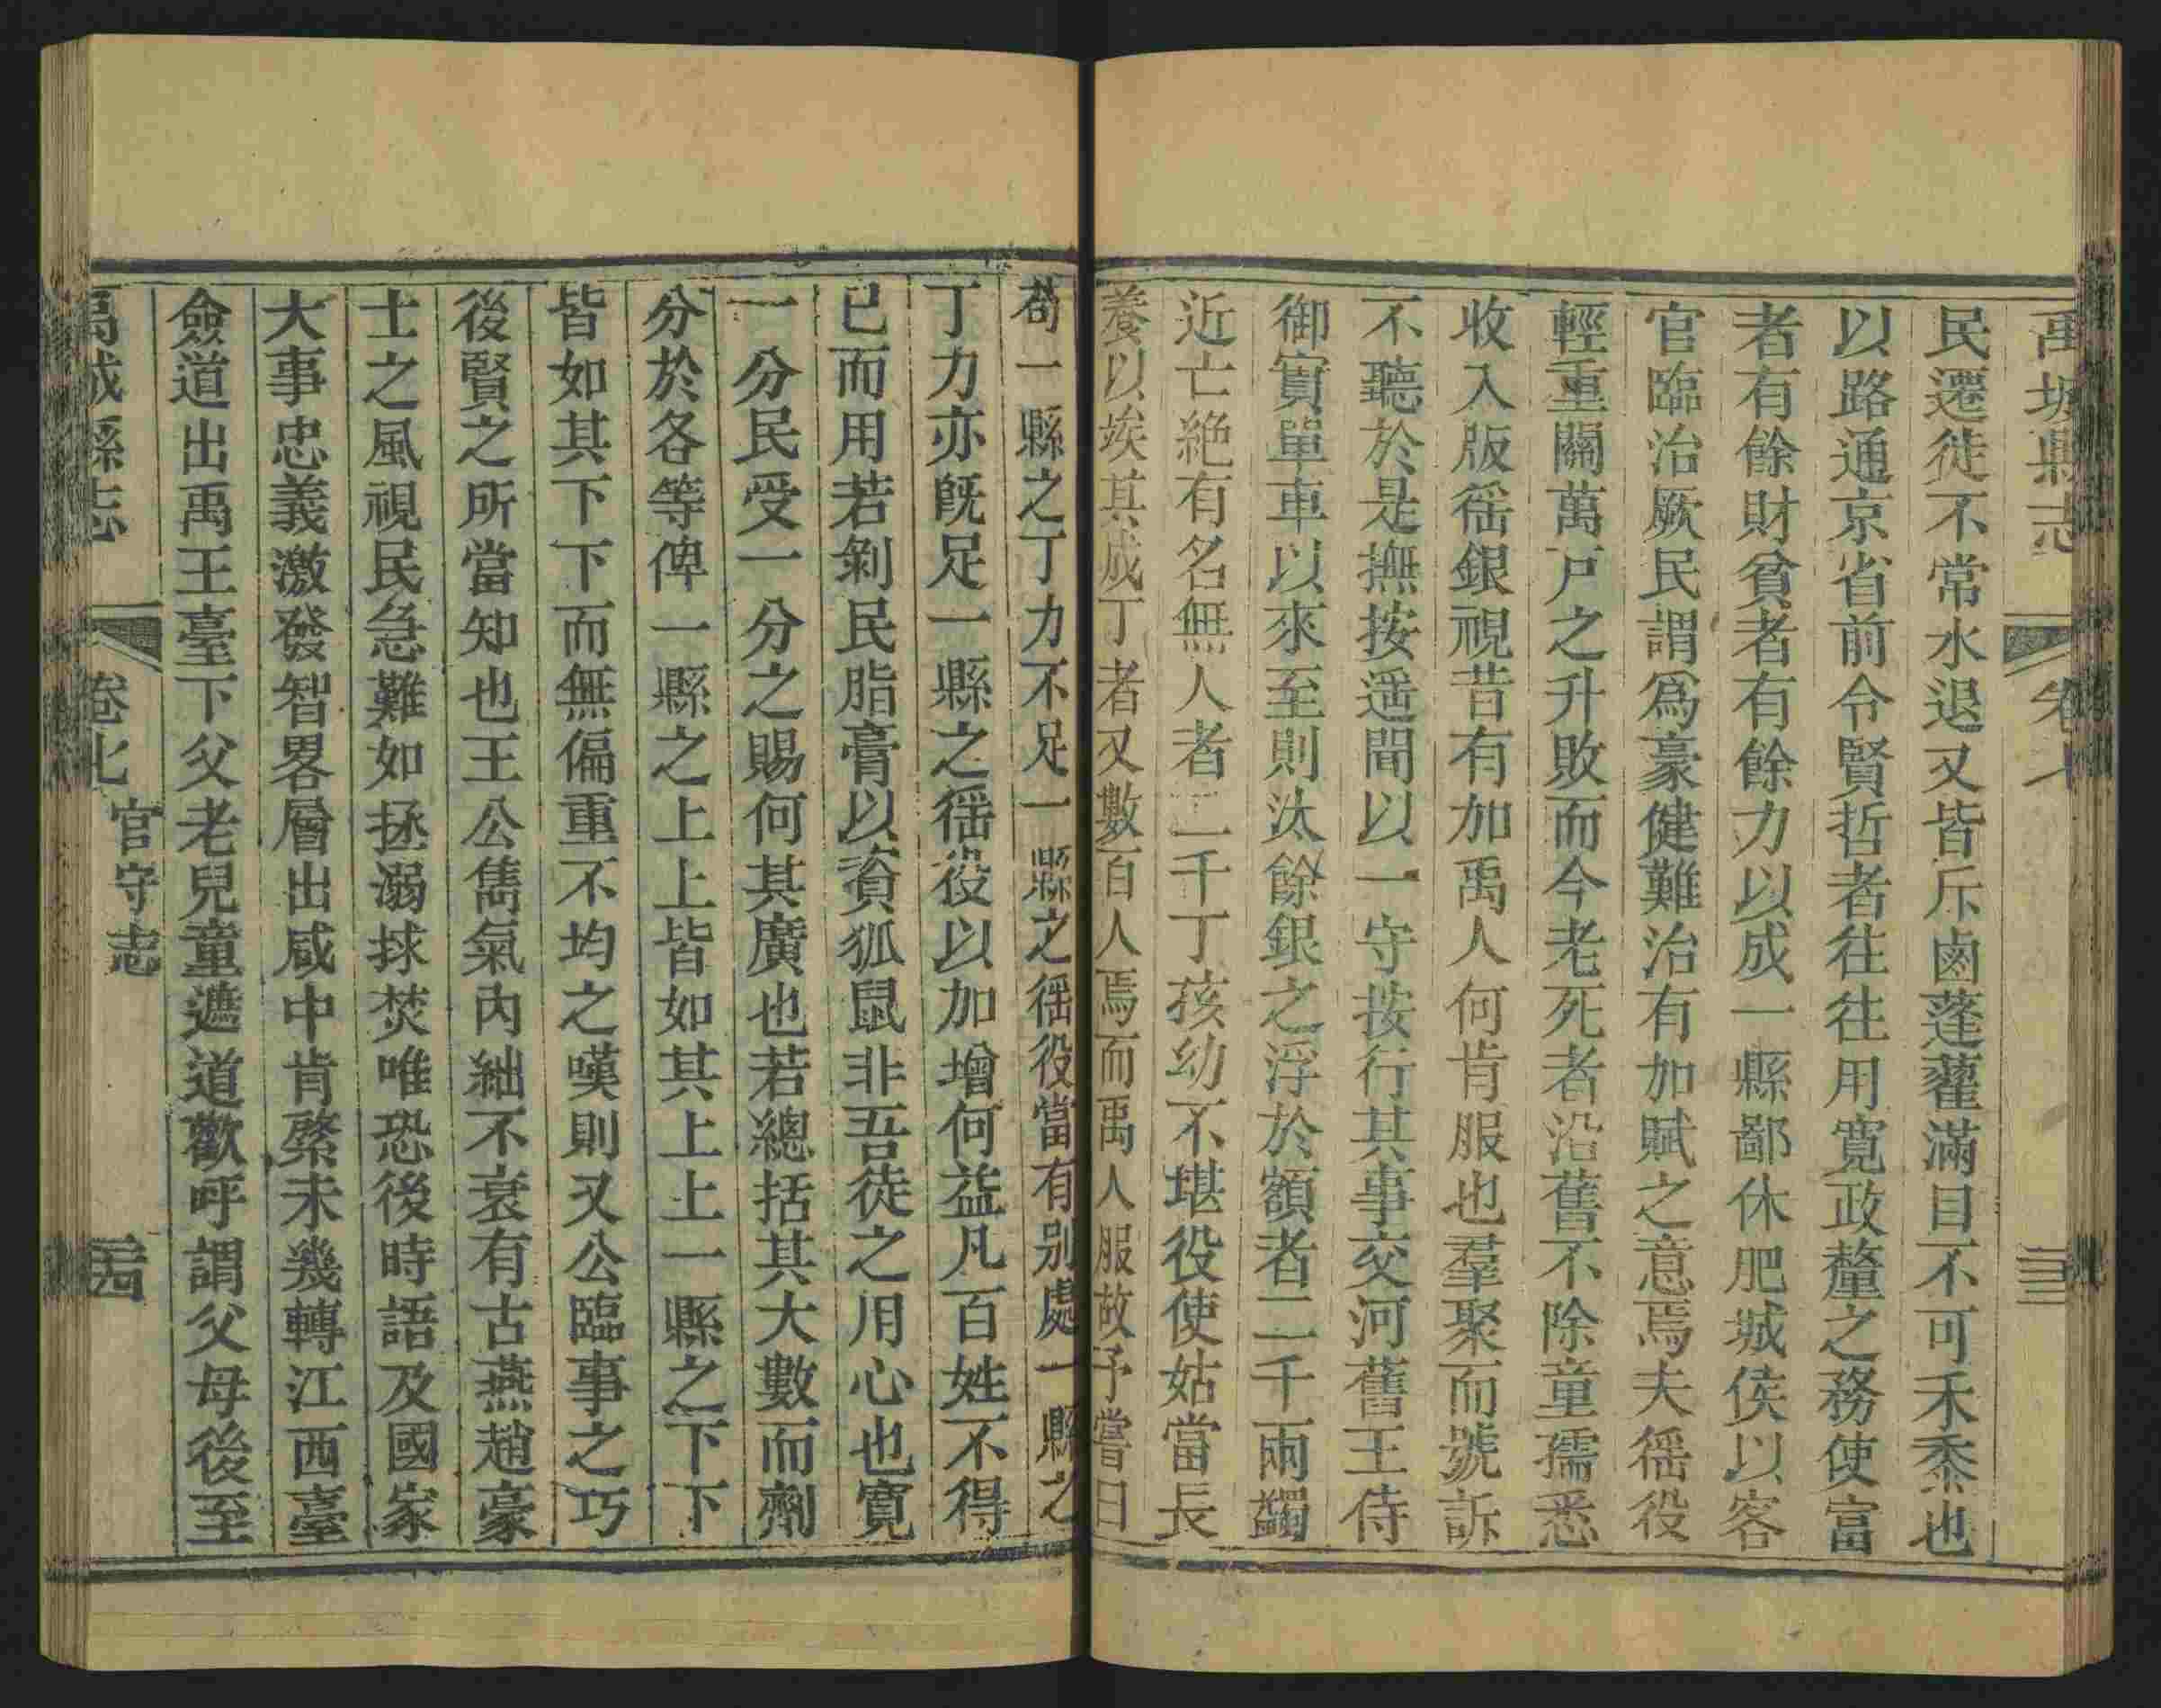 禹城縣志 卷七 三三
民遷徙不常水退又皆斥鹵蓬藋滿目不可禾黍也
以路通京省前令賢哲者往往用寬政釐之務使富
者有餘財貧者有餘力以成一縣鄙休肥城侯以客
官臨治厥民謂爲豪健難治有加賦之意焉夫徭役
輕重關萬戸之升敗而今老死者沿舊不除童孺悉
收入版徭銀視昔有加禹人何肯服也羣聚而號訴
不聽於是撫按遥間以一守按行其事交河舊王侍
御實單車以來至則汰餘銀之浮於額者二千兩蠲
近亡絶有名無人者二千丁孩幼不堪役使姑當長
養以俟其成丁者又數百人焉而禹人服故予嘗曰
苟一縣之丁力不足一縣之徭役當有别處一縣之
丁力亦旣足一縣之徭役以加增何益凡百姓不得
已而用若剝民脂膏以資狐鼠非吾徒之用心也寛
一分民受一分之賜何其廣也若總括其大數而劑
分於各等俾一縣之上上皆如其上上一縣之下下
皆如其下下而無偏重不均之嘆則又公臨事之巧
後賢之所當知也王公雋氣內絀不衰有古燕趙豪
士之風視民急難如拯溺捄焚唯恐後時語及國家
大事忠義激發智畧層出咸中肯綮未幾轉江西臺
僉道出禹王臺下父老兒童遮道歡呼謂父母後至
禹城縣志 卷七 官守志 三四